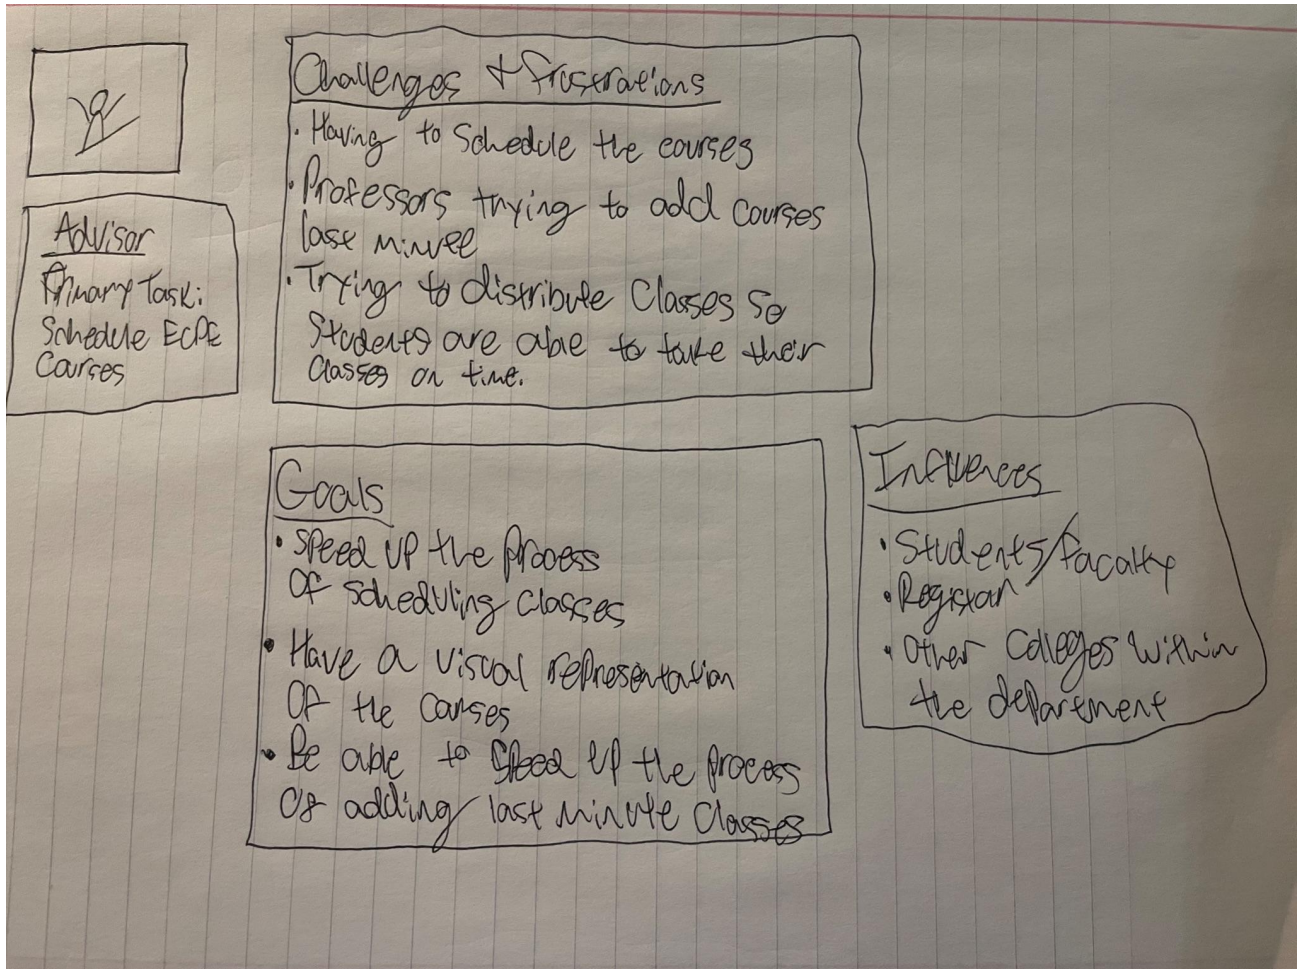 Challenges + frustrations
• Having to schedule the courses
• Professors trying to add courses
last minute
• Trying to distribute classes so
students are able to take their
classes on time.
Advisor
Primary Task:
Schedule ECPE
Courses
Goals
• Speed up the process
of scheduling classes
• Have a visual representation
of the courses
• Be able to speed up the process
of adding last minute classes
Influences
• Students/faculty
• Registrar
• Other colleges within
the department